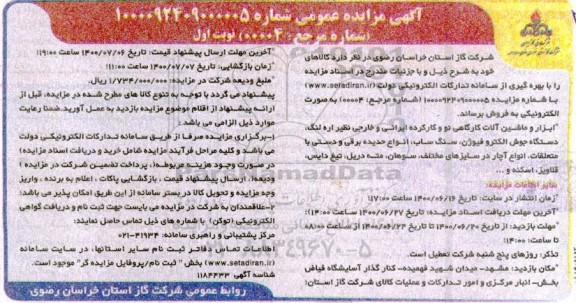 آگهی مزایده عمومی شماره ۱۰۰۰۰۹۲۴۰۹۰۰۰۰۰۵
(شماره مرجع: ۰۰۰۰۴) نوبت اول
شرکت گاز استان خراسان رضوی در نظر دارد کالاهای
خود به شرح ذیل و با جزئیات مندرج در اسناد مزایده
را با بهره گیری از سامانه تدارکات الکترونیکی دولت (www.setadiran.ir)
با شماره مزایده ۱۰۰۰۰۹۲۴۰۹۰۰۰۰۰۵ (شماره مرجع: ۰۰۰۰۴) به صورت
الکترونیکی به فروش برساند.
*ابزار و ماشین آلات کارگاهی نو و کارکرده ایرانی و خارجی نظیر اره لنگ،
دستگاه جوش الکترو فیوژن، سنگ ساب، انواع حدیده برقی و دستی با
متعلقات، انواع آچار در سایزهای مختلف، سوهان، مته دریل، تیغ دایس،
قلاویز، اسکنه و ...
سایر اطلاعات مزایده:
*زمان انتشار در سایت: تاریخ ۱۴۰۰/۰۶/۱۶ ساعت ۱۷:۰۰
*آخرین مهلت دریافت اسناد مزایده: تاریخ ۱۴۰۰/۰۶/۲۷ ساعت ۱۴:۰۰
*مهلت بازدید: از تاریخ ۱۴۰۰/۰۶/۲۰ تا تاریخ ۱۴۰۰/۰۶/۲۴ از ساعت ۰۸:۰۰
تا ساعت: ۱۴:۰۰
تذکر: روزهای پنج شنبه شرکت تعطیل است.
*مکان بازدید: مشهد- میدان شهید فهمیده- کنار گذر آسایشگاه فیاض
بخش- انبار مرکزی و امور تدارکات و عملیات کالای شرکت گاز استان؛
*آخرین مهلت ارسال پیشنهاد قیمت: تاریخ ۱۴۰۰/۰۷/۰۶ ساعت ۱۹:۰۰
*زمان بازگشایی: تاریخ ۱۴۰۰/۰۷/۰۷ ساعت
*مبلغ ودیعه شرکت در مزایده: ۱/۷۳۴/۰۰۰/۰۰۰ ریال.
پیشنهاد می گردد با توجه به تنوع کالا های مطرح شده در مزایده، قبل از
ارائه پیشنهاد از اقلام موضوع مزایده بازدید به عمل آورید. ضمنا رعایت
موارد ذیل الزامی می باشد.
۱-برگزاری مزایده صرفا از طریق سامانه تدارکات الکترونیکی دولت
می باشد و کلیه مراحل فرآیند مزایده شامل خرید و دریافت اسناد مزایده(
در صورت وجود هزینه مربوطه)، پرداخت تضمین شرکت در مزایده (
ودیعه)، ارسال پیشنهاد قیمت، بازگشایی پاکات، اعلام به برنده، واریز
وجه مزایده و تحویل کالا در بستر سامانه از این طریق امکان پذیر می باشد؛
۲-علاقمندان به شرکت در مزایده می بایست جهت ثبت نام و دریافت گواهی
الکترونیکی (توکن) با شماره های ذیل تماس حاصل نمایند:
مرکز پشتیبانی و راهبری سامانه: ۴۱۹۳۴-۰۲۱
اطلاعات تماس دفاتر ثبت نام سایر استانها، در سایت سامانه
(www.setadiran.ir) بخش " ثبت نام/پروفایل مزایده گر" موجود است.
شناسه آگهی ۱۱۸۴۴۳۳
روابط عمومی شرکت گاز استان خراسان رضوی